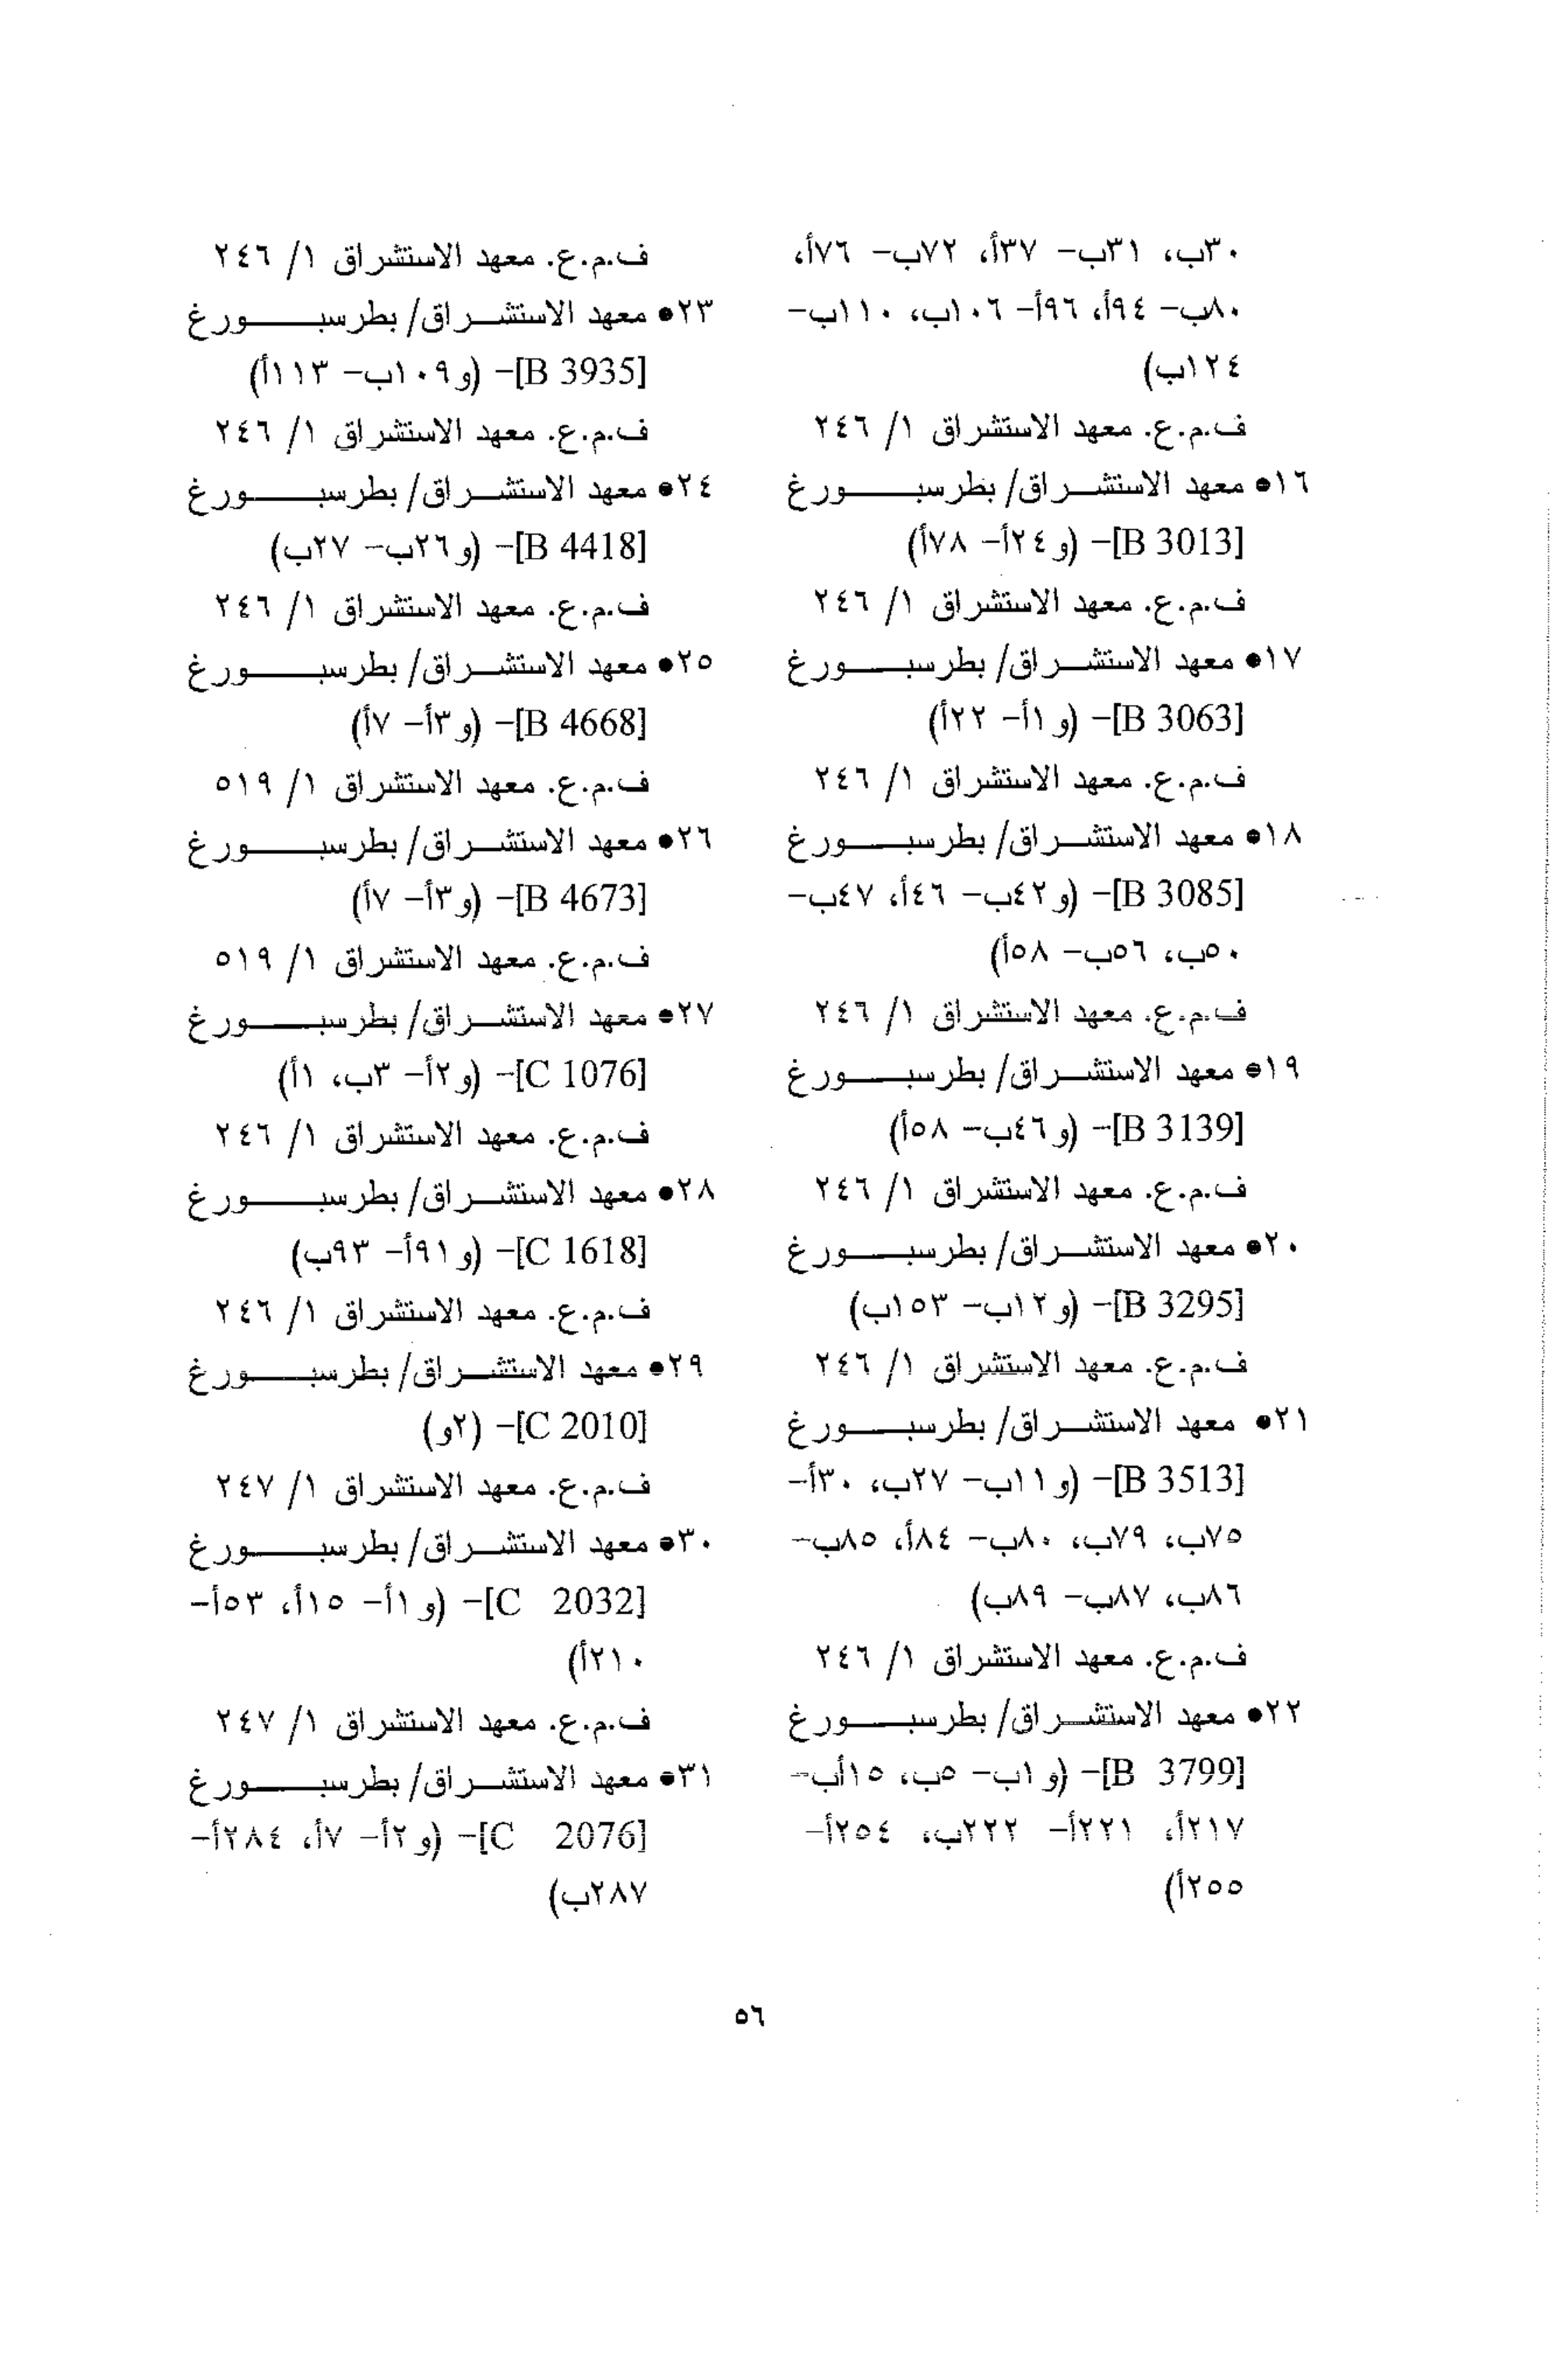 ٣٠ب، ٣١ب- ٣٧أ، ٧٢ب- ٧٦أ،
٨٠ب- ٩٤أ، ٩٦أ- ١٠٦ب، ١١٠ب-
١٢٤ب)
ف.م.ع. معهد الاستشراق ١/ ٢٤٦
١٦● معهد الاستشراق/ بطرسبورغ
[B 3013]- (و٢٤أ- ٧٨أ)
ف.م.ع. معهد الاستشراق ١/ ٢٤٦
١٧● معهد الاستشراق/ بطرسبورغ
[B 3063]- (و١أ- ٢٢أ)
ف.م.ع. معهد الاستشراق ١/ ٢٤٦
١٨● معهد الاستشراق/ بطرسبورغ
[B 3085]- (و٤٢ب- ٤٦أ، ٤٧ب-
٥٠ب، ٥٦ب- ٥٨أ)
ف.م.ع. معهد الاستشراق ١/ ٢٤٦
١٩● معهد الاستشراق/ بطرسبورغ
[B 3139]- (و٤٦ب- ٥٨أ)
ف.م.ع. معهد الاستشراق ١/ ٢٤٦
٢٠● معهد الاستشراق/ بطرسبورغ
[B 3295]- (و١٢ب- ١٥٣ب)
ف.م.ع. معهد الاستشراق ١/ ٢٤٦
٢١● معهد الاستشراق/ بطرسبورغ
[B 3513]- (و١١ب- ٢٧ب، ٣٠أ-
٧٥ب، ٧٩ب، ٨٠ب- ٨٤أ، ٨٥ب-
٨٦ب، ٨٧ب- ٨٩ب)
ف.م.ع. معهد الاستشراق ١/ ٢٤٦
٢٢● معهد الاستشراق/ بطرسبورغ
[B 3799]- (و١ب- ٥ب، ١٥أب-
٢١٧أ، ٢٢١أ- ٢٢٢ب، ٢٥٤أ-
٢٥٥أ)
ف.م.ع. معهد الاستشراق ١/ ٢٤٦
٢٣● معهد الاستشراق/ بطرسبورغ
[B 3935]- (و١٠٩ب- ١١٣أ)
ف.م.ع. معهد الاستشراق ١/ ٢٤٦
٢٤● معهد الاستشراق/ بطرسبورغ
[B 4418]- (و٢٦ب- ٢٧ب)
ف.م.ع. معهد الاستشراق ١/ ٢٤٦
٢٥● معهد الاستشراق/ بطرسبورغ
[B 4668]- (و٣أ- ٧أ)
ف.م.ع. معهد الاستشراق ١/ ٥١٩
٢٦● معهد الاستشراق/ بطرسبورغ
[B 4673]- (و٣أ- ٧أ)
ف.م.ع. معهد الاستشراق ١/ ٥١٩
٢٧● معهد الاستشراق/ بطرسبورغ
[C 1076]- (و٢أ- ٣ب، ١أ)
ف.م.ع. معهد الاستشراق ١/ ٢٤٦
٢٨● معهد الاستشراق/ بطرسبورغ
[C 1618]- (و٩١أ- ٩٣ب)
ف.م.ع. معهد الاستشراق ١/ ٢٤٦
٢٩● معهد الاستشراق/ بطرسبورغ
[C 2010]- (٢و)
ف.م.ع. معهد الاستشراق ١/ ٢٤٧
٣٠● معهد الاستشراق/ بطرسبورغ
[C 2032]- (و١أ- ١٥أ، ٥٣أ-
٢١٠أ)
ف.م.ع. معهد الاستشراق ١/ ٢٤٧
٣١● معهد الاستشراق/ بطرسبورغ
[C 2076]- (و٢أ- ٧أ، ٢٨٤أ-
٢٨٧ب)
٥٦